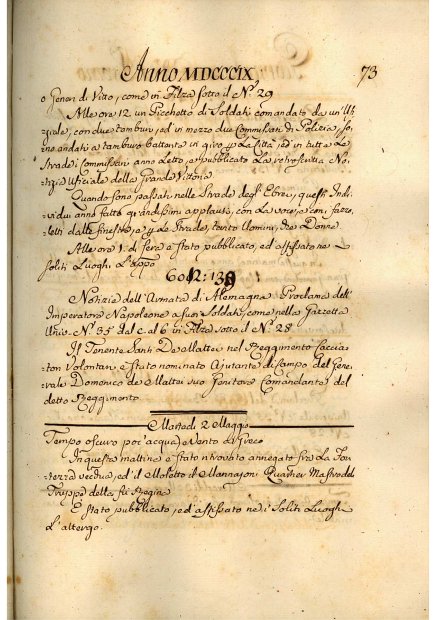 Anno MDCCCIX 73
o Generi di Vitto, come in Filza sotto il N.º 29
Alle ore 12 un Picchetto di Soldati comandato da un'Uf-
iziale, con due tamburi, ed in mezzo due Commissari di Polizia, so-
no andati a tamburo battente in giro p. La Città, ed in tutte Le
Strade i Commissari anno Letto, e pubblicato La retroscritta No-
tizia Ufiziale della Grande Vittoria
Quando sono passati nelle Strade degli Ebrei, questi Indi-
vidui anno fatto grandissimi applausi, con La voce, e con fazzo-
letti dalle finestre, e p. Le Strade, tanto Uomini, che Donne
Alle ore di sera è stato pubblicato, ed affissato ne i
soliti Luoghi L'
Notizie dell'Armata di Alemagna Proclama dell'
Imperatore Napoleone a suoi Soldati, come nella Gazzetta
Univ. N.º 35 del al 6 in Filza sotto il N.º 28
Il Tenente Santi De Mattei nel Reggimento Caccia-
tori Volontari, è stato nominato Ajutante di Campo del Gene-
rale Domenico de Mattei suo Genitore Comandante del
detto Reggimento
Martedì 2 Maggio
Tempo oscuro poi acqua, e vento da Greco
In questa mattina è stato ritrovato annegato fra La For-
tezza vecchia, ed il Moletto il Mannajoni Quartier Mastro del
Truppe della fù Regina
È stato pubblicato, ed affissato ne i soliti Luoghi
L'altergo.